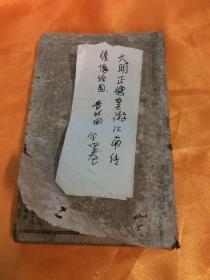 大明正德皇游江南传
绣像绘图 黄竹园 全四卷